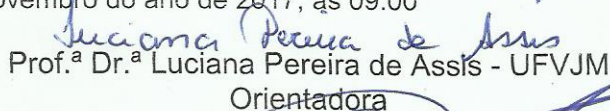 novembro do ano de 2017, às 09:00
Luciana Pereira de Assis
Prof.ª Dr.ª Luciana Pereira de Assis - UFVJM
Orientadora